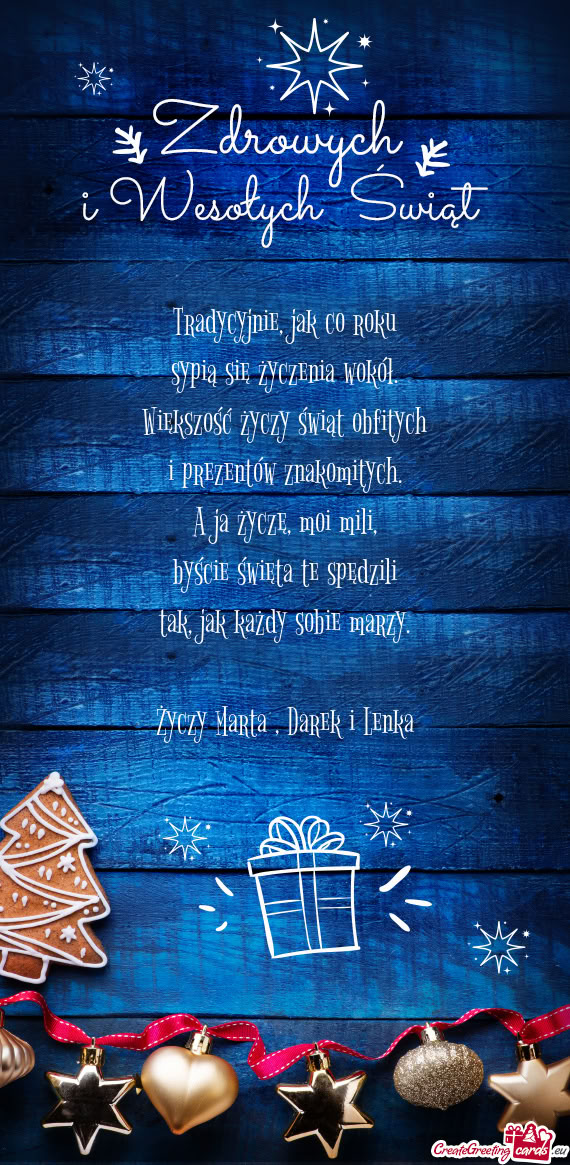 Zdrowych
i Wesołych Świąt
Tradycyjnie, jak co roku
sypią się życzenia wokół.
Większość życzy świąt obfitych
i prezentów znakomitych.
A ja życzę, moi mili,
byście święta te spędzili
tak, jak każdy sobie marzy.
Życzy Marta , Darek i Lenka
CreateGreetingcards.eu